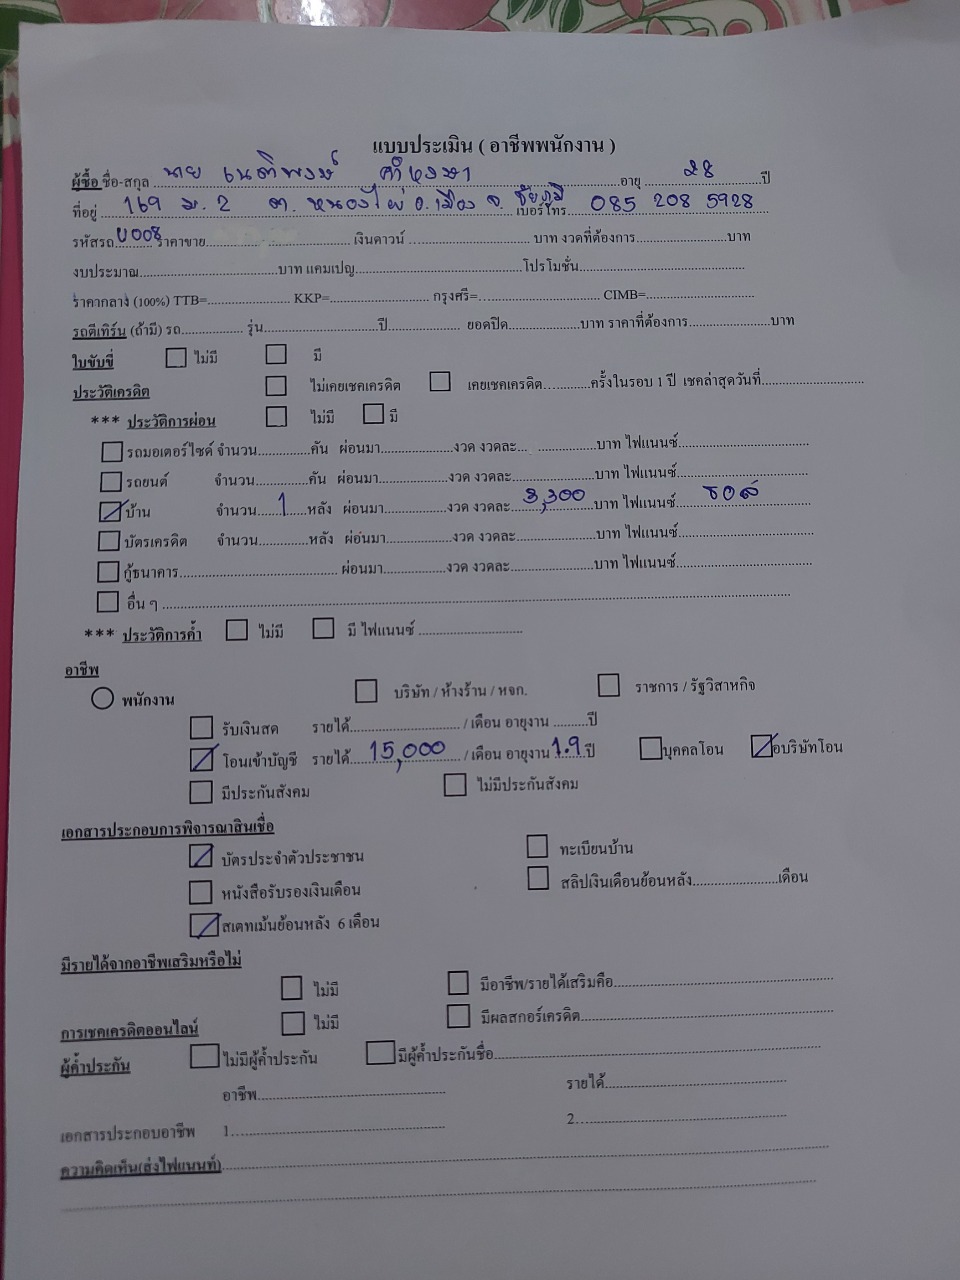 แบบประเมิน ( อาชีพพนักงาน )
ผู้ซื้อ ชื่อ-สกุล นาย เนติพงษ์ คำหงษา อายุ 28 ปี
ที่อยู่ 169 ม.2 ต.หนองไผ่ อ.เมือง จ.ชัยภูมิ เบอร์โทร 085 208 5928
รหัสรถ U008 ราคาขาย.................... เงินดาวน์ .................... บาท งวดที่ต้องการ....................บาท
งบประมาณ....................บาท แคมเปญ....................โปรโมชั่น....................
ราคากลาง (100%) TTB=.................... KKP=.................... กรุงศรี=.................... CIMB=....................
รถตีเทิร์น (ถ้ามี) รถ.................... รุ่น....................ปี.................... ยอดปิด....................บาท ราคาที่ต้องการ....................บาท
ใบขับขี่ ไม่มี มี
ประวัติเครดิต ไม่เคยเชคเครดิต เคยเชคเครดิต............ครั้งในรอบ 1 ปี เชคล่าสุดวันที่....................
*** ประวัติการผ่อน ไม่มี มี
รถมอเตอร์ไซด์ จำนวน............คัน ผ่อนมา............งวด งวดละ............บาท ไฟแนนซ์....................
รถยนต์ จำนวน............คัน ผ่อนมา............งวด งวดละ............บาท ไฟแนนซ์....................
บ้าน จำนวน 1 หลัง ผ่อนมา............งวด งวดละ 3,300 บาท ไฟแนนซ์ ธอส
บัตรเครดิต จำนวน............หลัง ผ่อนมา............งวด งวดละ............บาท ไฟแนนซ์....................
กู้ธนาคาร.................... ผ่อนมา............งวด งวดละ............บาท ไฟแนนซ์....................
อื่น ๆ ....................
*** ประวัติการค้ำ ไม่มี มี ไฟแนนซ์ ....................
อาชีพ
พนักงาน บริษัท / ห้างร้าน / หจก. ราชการ / รัฐวิสาหกิจ
รับเงินสด รายได้.................... / เดือน อายุงาน .........ปี
โอนเข้าบัญชี รายได้ 15,000 / เดือน อายุงาน 1.9 ปี บุคคลโอน บริษัทโอน
มีประกันสังคม ไม่มีประกันสังคม
เอกสารประกอบการพิจารณาสินเชื่อ
บัตรประจำตัวประชาชน ทะเบียนบ้าน
หนังสือรับรองเงินเดือน สลิปเงินเดือนย้อนหลัง....................เดือน
สเตทเม้นย้อนหลัง 6 เดือน
มีรายได้จากอาชีพเสริมหรือไม่
ไม่มี มีอาชีพ/รายได้เสริมคือ....................
การเชคเครดิตออนไลน์ ไม่มี มีผลสกอร์เครดิต....................
ผู้ค้ำประกัน ไม่มีผู้ค้ำประกัน มีผู้ค้ำประกันชื่อ....................
อาชีพ.................... รายได้....................
เอกสารประกอบอาชีพ 1..................... 2.....................
ความคิดเห็น(ส่งไฟแนนท์)....................